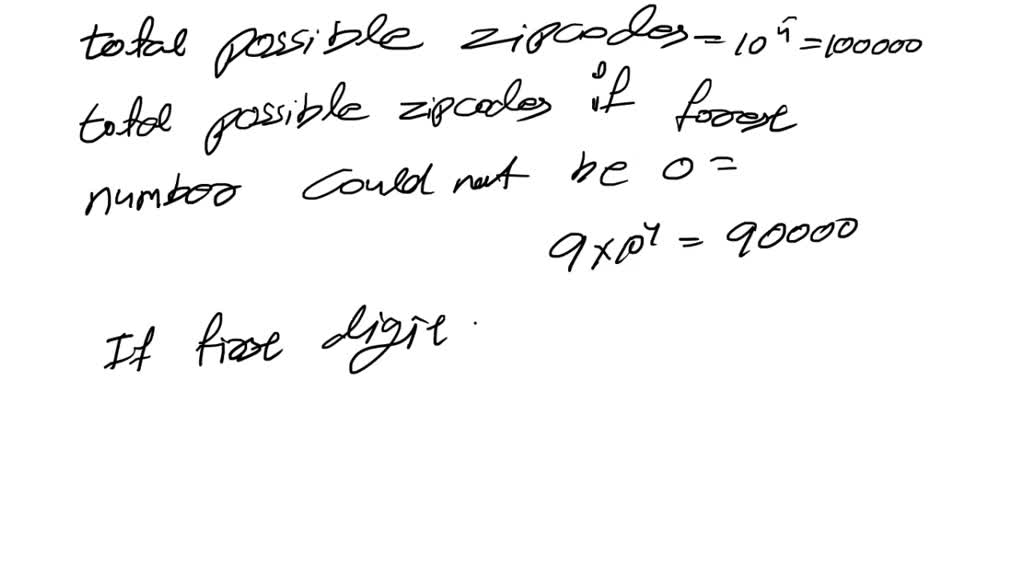 total possible zipcodes = 10⁵ = 100000
total possible zipcodes if first
number could not be 0 =
9 x 10⁴ = 90000
If first digit